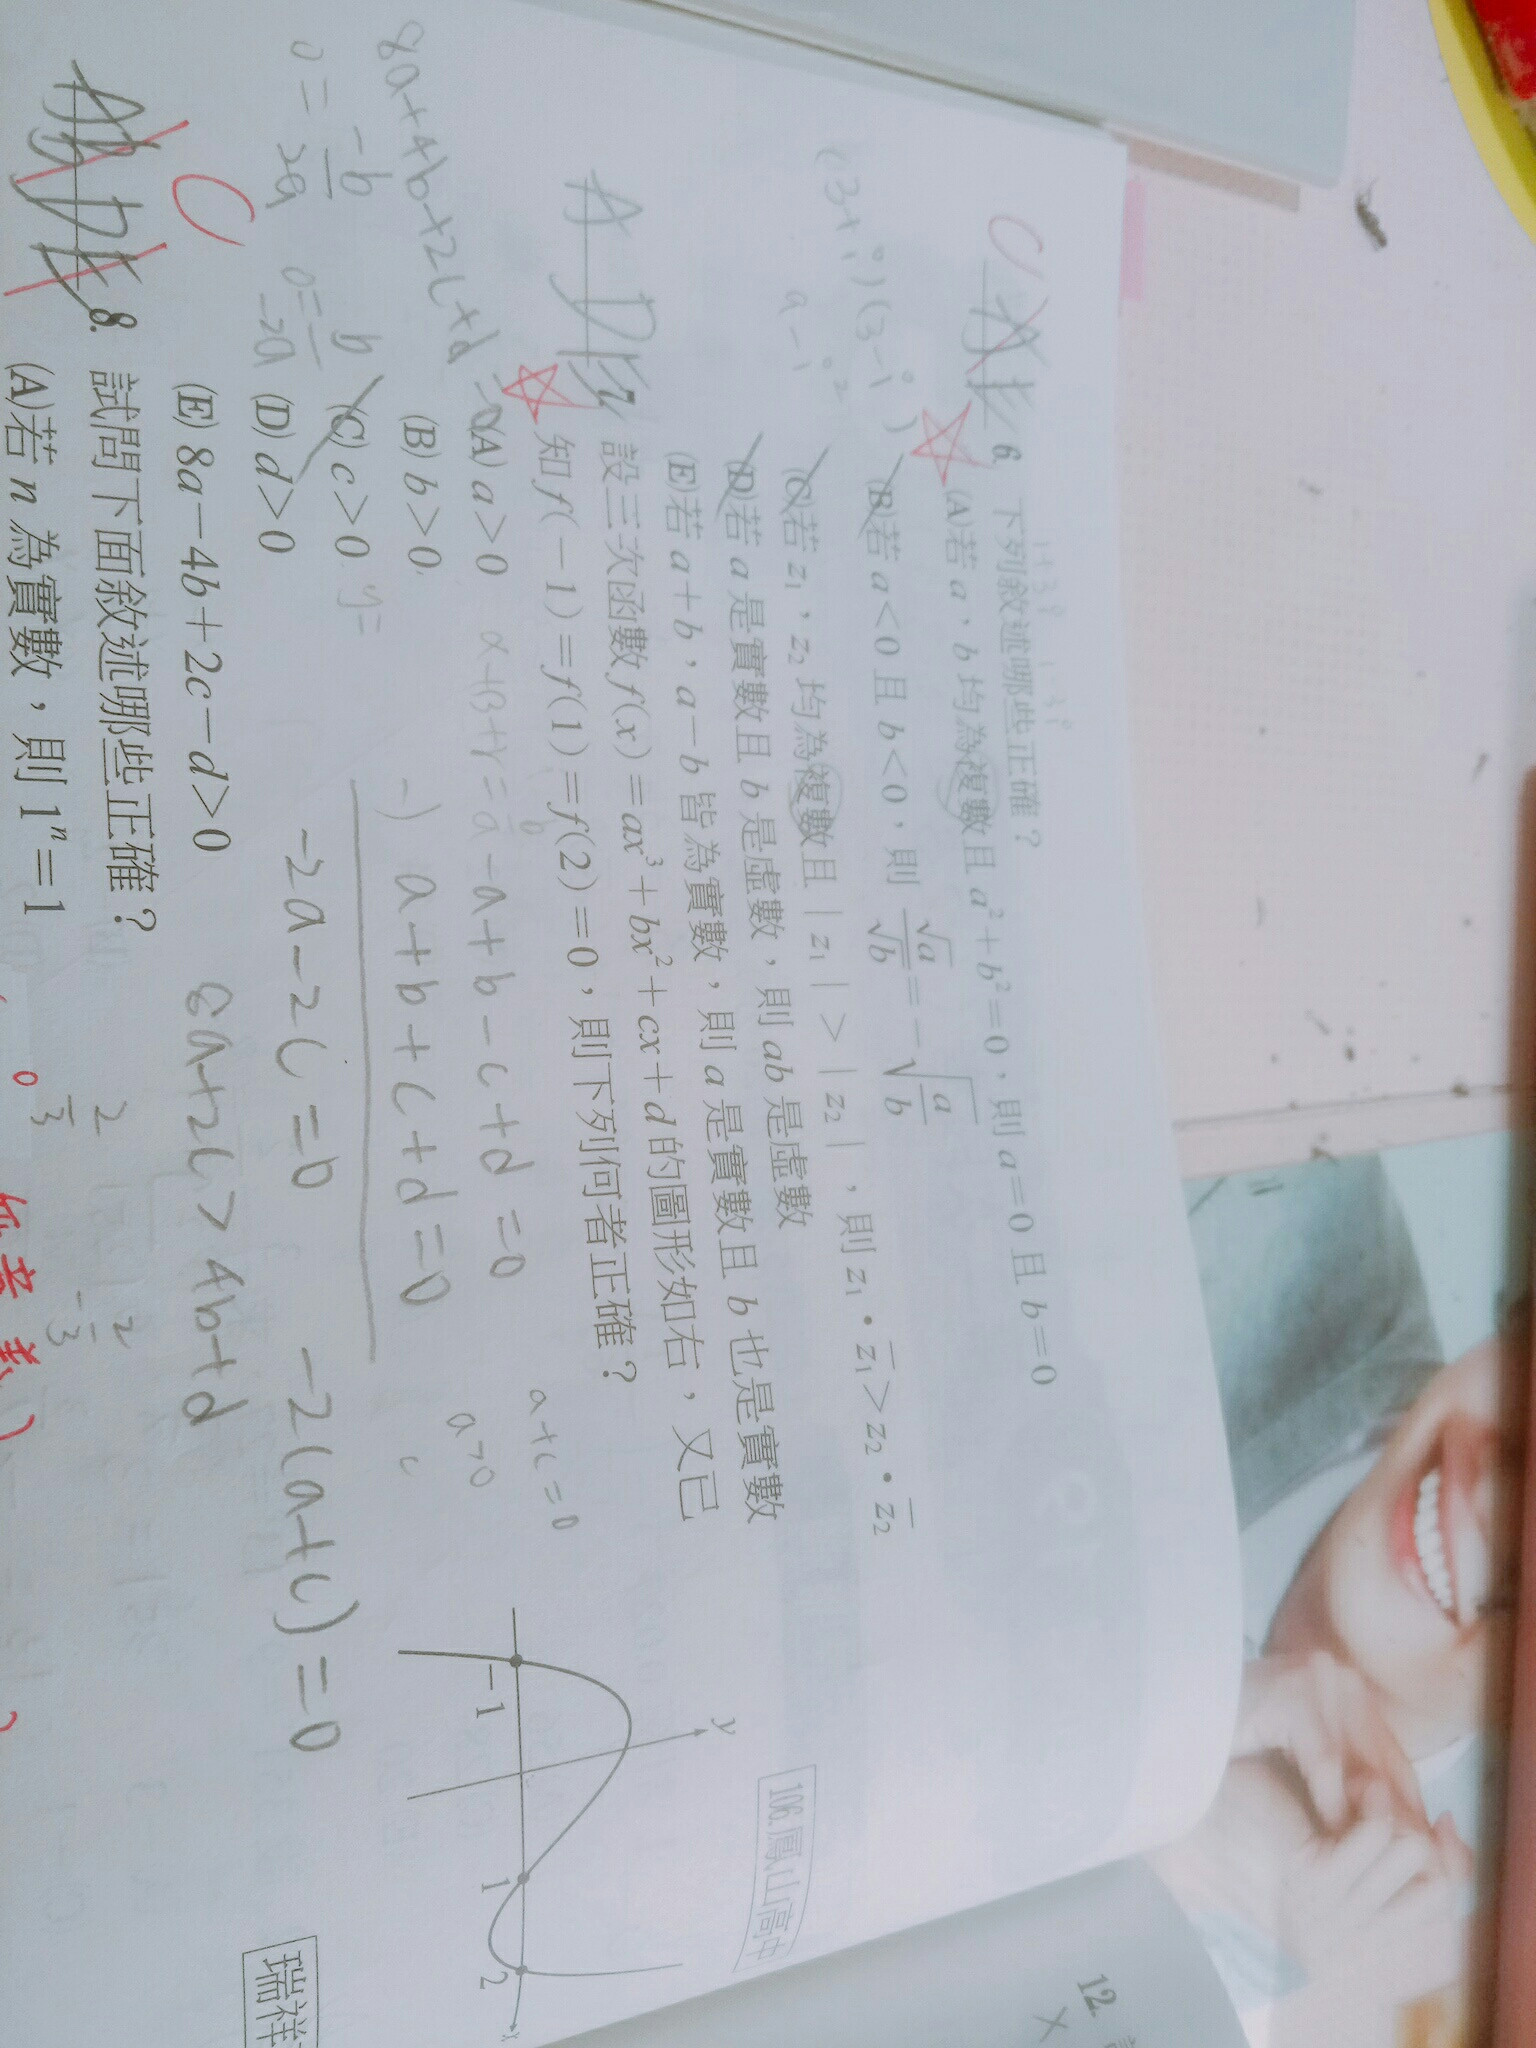 1+3i 1-3i
6. 下列敘述哪些正確？
(A)若 a、b 均為複數且 a²+b²=0，則 a=0 且 b=0
(B)若 a<0 且 b<0，則 √a/√b=-√(a/b)
(C)若 z₁，z₂ 均為複數且｜z₁｜>｜z₂｜，則 z₁•z̄₁>z₂•z̄₂
(D)若 a 是實數且 b 是虛數，則 ab 是虛數
(E)若 a+b，a-b 皆為實數，則 a 是實數且 b 也是實數
(3+i)(3-i)
a-i²
106.鳳山高中
A D
7. 設三次函數 f(x)=ax³+bx²+cx+d 的圖形如右，又已
知 f(-1)=f(1)=f(2)=0，則下列何者正確？
(A) a>0
(B) b>0
(C) c>0
(D) d>0
(E) 8a-4b+2c-d>0
y
-1
1
2
x
8a+4b+2c+d=0
0=-b/2a
-a+b-c+d=0
-) a+b+c+d=0
-2a-2c=0
-2(a+c)=0
a+c=0
a>0
c
y=
8a+2c>4b+d
瑞祥
C
8. 試問下面敘述哪些正確？
(A)若 n 為實數，則 1ⁿ=1
2/3
12.